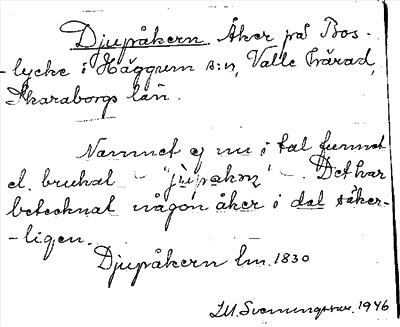 Djupåkern. Åker på Bos-
-lycke i Häggum s:n, Valle härad,
Skaraborgs län.
Namnet ej nu i tal funnet
el. brukat – "jupakɔn" –. Det har
betecknat någon åker i dal säker-
-ligen.
Djupåkern lm. 1830
Svenningsson. 1946